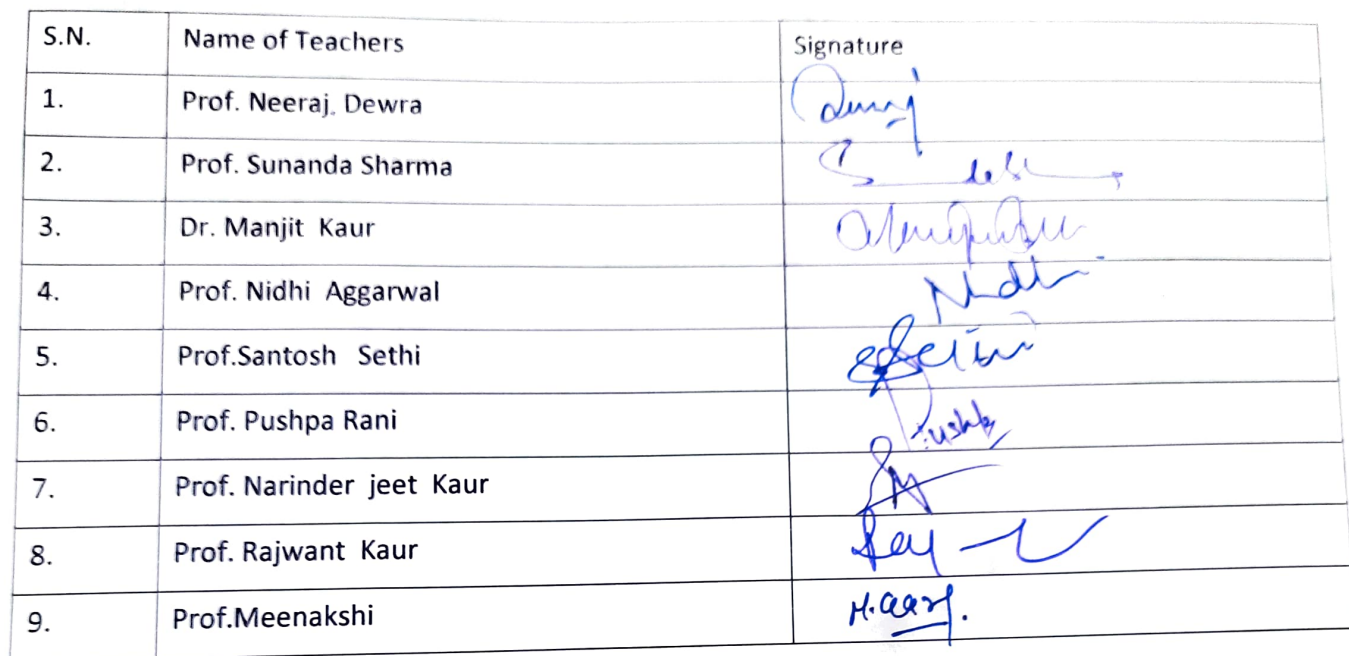 S.N. Name of Teachers Signature
1. Prof. Neeraj. Dewra
2. Prof. Sunanda Sharma
3. Dr. Manjit Kaur
4. Prof. Nidhi Aggarwal Nidhi
5. Prof.Santosh Sethi Sethi
6. Prof. Pushpa Rani
7. Prof. Narinder jeet Kaur
8. Prof. Rajwant Kaur
9. Prof.Meenakshi